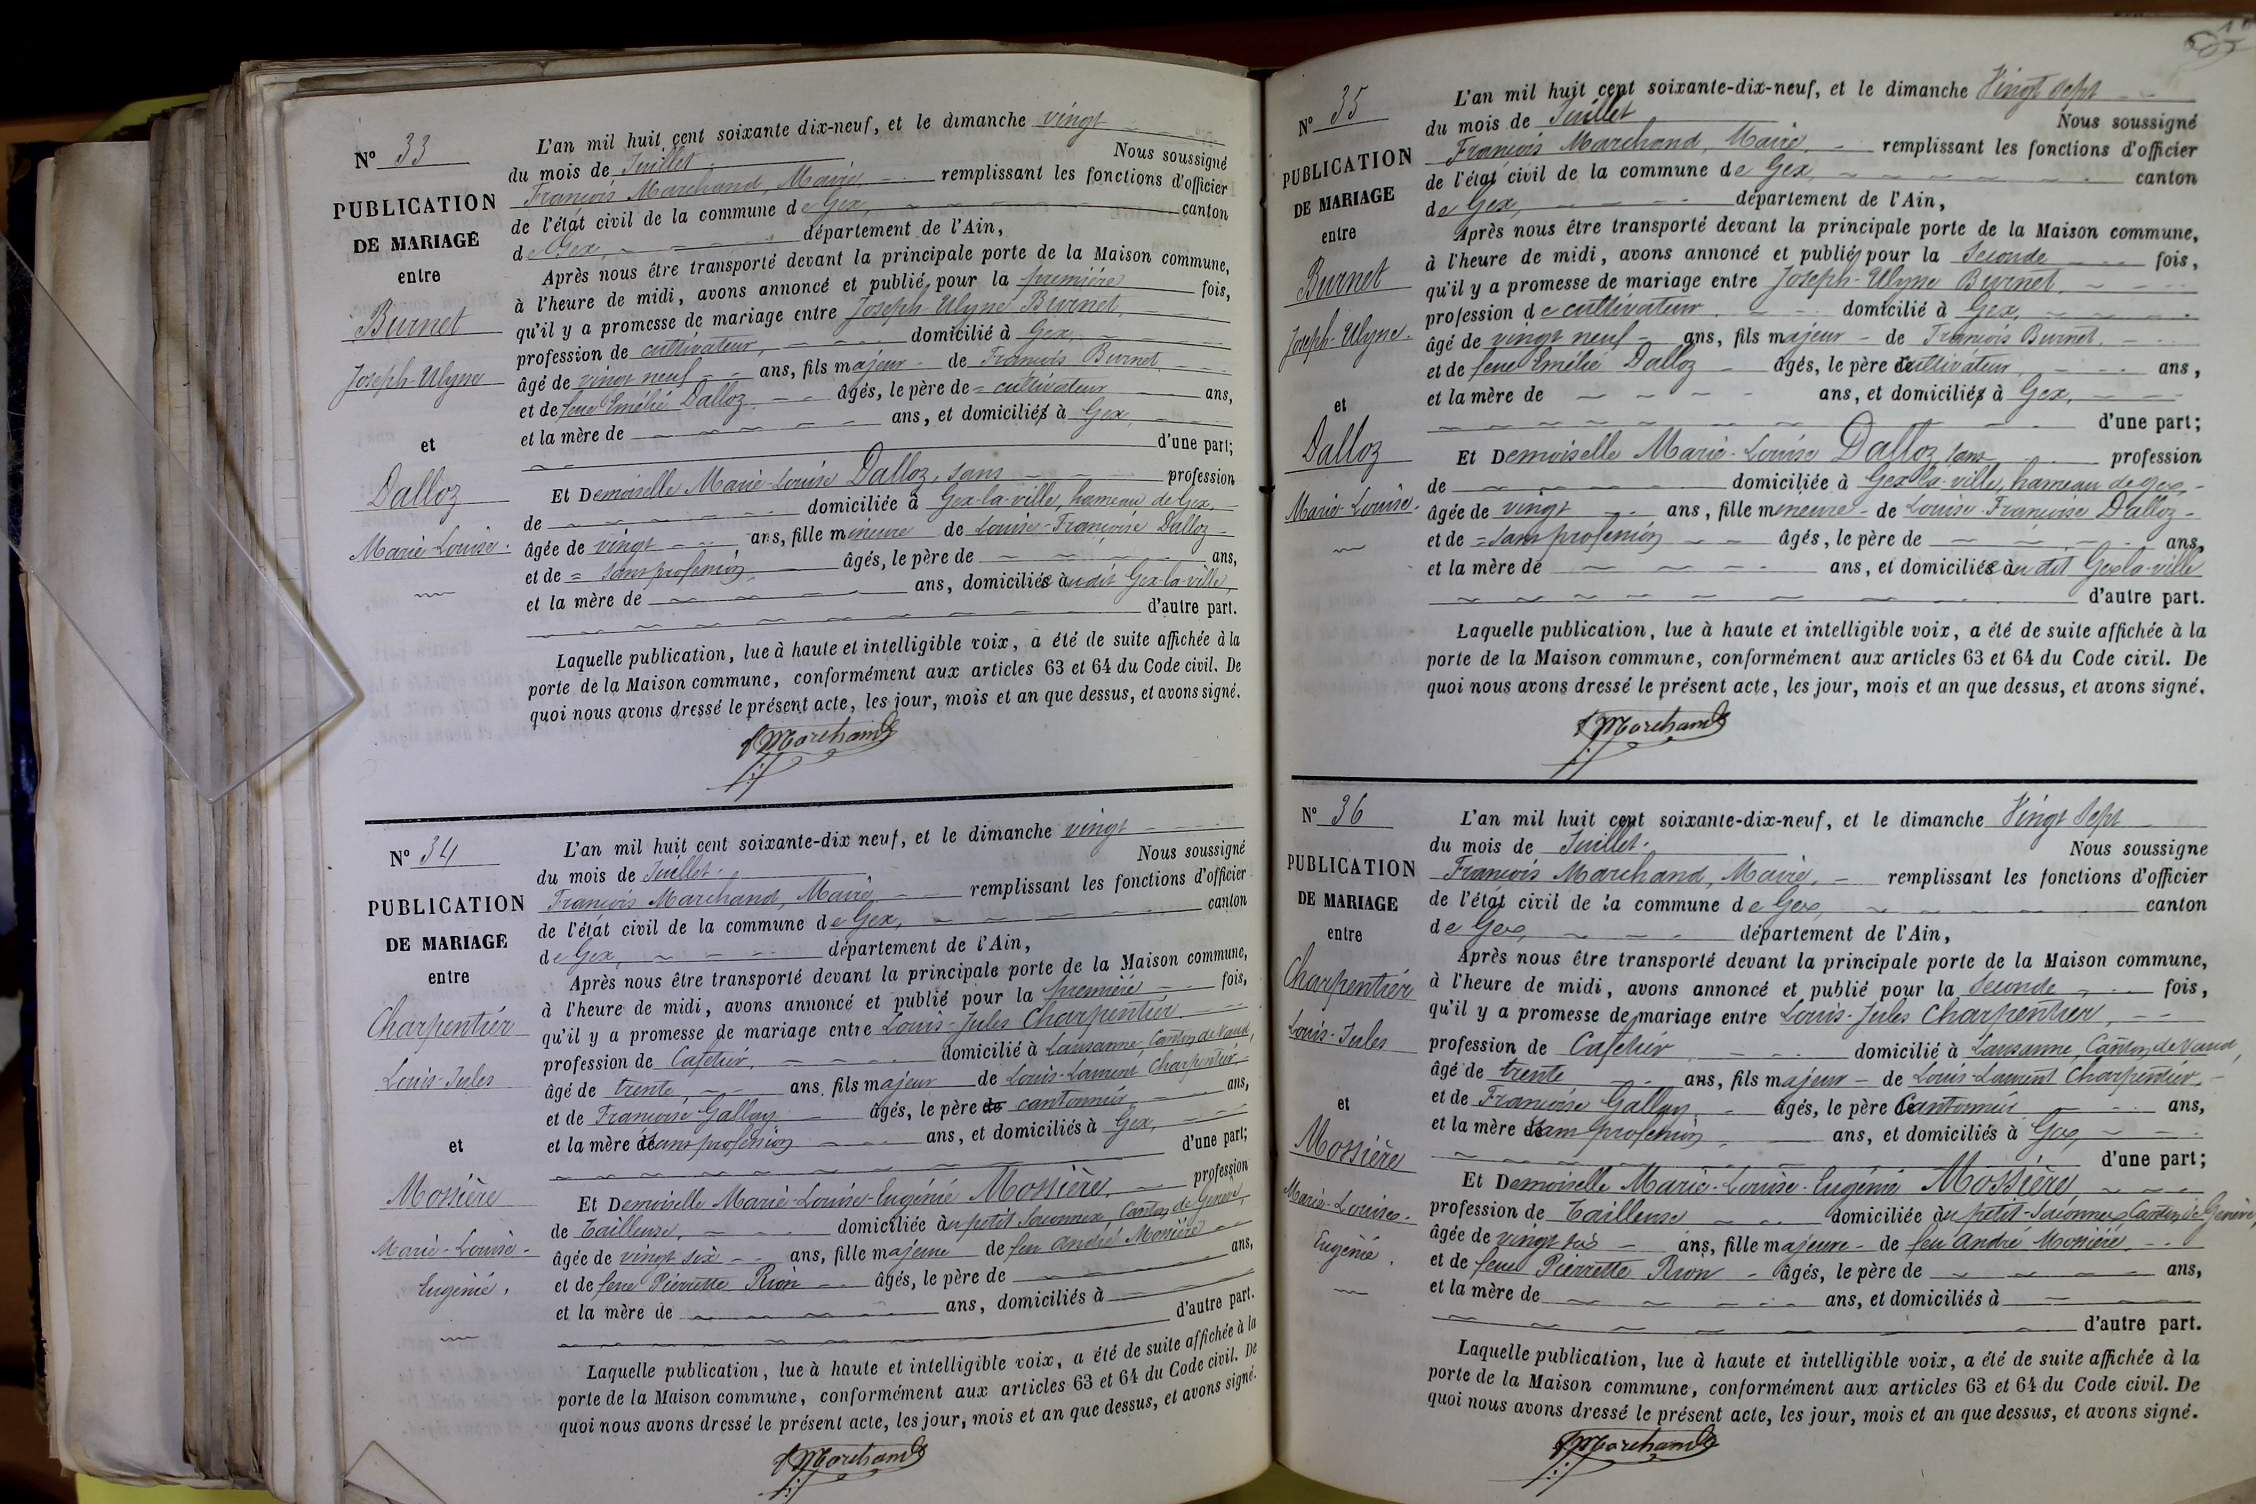 N° 33
PUBLICATION
DE MARIAGE
entre
Burnet
Joseph-Ulyne
et
Dalloz
Marie-Louise.
L'an mil huit cent soixante dix-neuf, et le dimanche vingt
du mois de Juillet. Nous soussigné
François Marchand, Maire, remplissant les fonctions d'officier
de l'état civil de la commune de Gex, canton
de Gex, département de l'Ain,
Après nous être transporté devant la principale porte de la Maison commune,
à l'heure de midi, avons annoncé et publié pour la première fois,
qu'il y a promesse de mariage entre Joseph-Ulyne Burnet,
profession de cultivateur, domicilié à Gex,
âgé de vingt neuf ans, fils majeur de François Burnet,
et de feue Emélie Dalloz âgés, le père de = cultivateur ans,
et la mère de ans, et domiciliés à Gex,
d'une part;
Et Demoiselle Marie-Louise Dalloz, sans profession
de domiciliée à Gex-la-ville, hameau de Gex,
âgée de vingt ans, fille mineure de Louise-Françoise Dalloz
et de = sans profession, âgés, le père de ans,
et la mère de ans, domiciliés au dit Gex-la-ville,
d'autre part.
Laquelle publication, lue à haute et intelligible voix, a été de suite affichée à la
porte de la Maison commune, conformément aux articles 63 et 64 du Code civil. De
quoi nous avons dressé le présent acte, les jour, mois et an que dessus, et avons signé.
f Marchand
N° 34
PUBLICATION
DE MARIAGE
entre
Charpentier
Louis-Jules
et
Mossière
Marie-Louise-
Eugénie.
L'an mil huit cent soixante-dix neuf, et le dimanche vingt
du mois de Juillet. Nous soussigné
François Marchand, Maire, remplissant les fonctions d'officier
de l'état civil de la commune de Gex, canton
de Gex, département de l'Ain,
Après nous être transporté devant la principale porte de la Maison commune,
à l'heure de midi, avons annoncé et publié pour la première fois,
qu'il y a promesse de mariage entre Louis-Jules Charpentier
profession de Cafetier, domicilié à Lausanne, Canton de Vaud,
âgé de trente, ans, fils majeur de Louis-Laurent Charpentier,
et de Françoise Gallay âgés, le père de cantonnier ans,
et la mère sans profession ans, et domiciliés à Gex,
d'une part;
Et Demoiselle Marie-Louise-Eugénie Mossière, profession
de Tailleuse, domiciliée au petit Saconnex, Canton de Genève,
âgée de vingt six ans, fille majeure de feu André Mossière
et de feue Pierrette Rion âgés, le père de ans,
et la mère de ans, domiciliés à
d'autre part.
Laquelle publication, lue à haute et intelligible voix, a été de suite affichée à la
porte de la Maison commune, conformément aux articles 63 et 64 du Code civil. De
quoi nous avons dressé le présent acte, les jour, mois et an que dessus, et avons signé.
f Marchand
N° 35
PUBLICATION
DE MARIAGE
entre
Burnet
Joseph-Ulyne.
et
Dalloz
Marie-Louise.
L'an mil huit cent soixante-dix-neuf, et le dimanche Vingt sept
du mois de Juillet Nous soussigné
François Marchand, Maire, remplissant les fonctions d'officier
de l'état civil de la commune de Gex, canton
de Gex, département de l'Ain,
Après nous être transporté devant la principale porte de la Maison commune,
à l'heure de midi, avons annoncé et publié pour la Seconde fois,
qu'il y a promesse de mariage entre Joseph-Ulyne Burnet
profession de cultivateur domicilié à Gex,
âgé de vingt neuf ans, fils majeur de François Burnet,
et de feue Emélie Dalloz âgés, le père cultivateur, ans,
et la mère de ans, et domiciliés à Gex,
d'une part;
Et Demoiselle Marie-Louise Dalloz, sans profession
de domiciliée à Gex-la-ville, hameau de Gex,
âgée de vingt ans, fille mineure de Louise-Françoise Dalloz
et de = sans profession âgés, le père de ans,
et la mère de ans, et domiciliés au dit Gex-la-ville
d'autre part.
Laquelle publication, lue à haute et intelligible voix, a été de suite affichée à la
porte de la Maison commune, conformément aux articles 63 et 64 du Code civil. De
quoi nous avons dressé le présent acte, les jour, mois et an que dessus, et avons signé.
f Marchand
N° 36
PUBLICATION
DE MARIAGE
entre
Charpentier
Louis-Jules
et
Mossière
Marie-Louise-
Eugénie.
L'an mil huit cent soixante-dix-neuf, et le dimanche Vingt Sept
du mois de Juillet. Nous soussigne
François Marchand, Maire, remplissant les fonctions d'officier
de l'état civil de la commune de Gex, canton
de Gex, département de l'Ain,
Après nous être transporté devant la principale porte de la Maison commune,
à l'heure de midi, avons annoncé et publié pour la Seconde fois,
qu'il y a promesse de mariage entre Louis-Jules Charpentier,
profession de Cafetier domicilié à Lausanne, Canton de Vaud,
âgé de trente ans, fils majeur de Louis-Laurent Charpentier,
et de Françoise Gallay, âgés, le père Cantonnier ans,
et la mère sans profession, ans, et domiciliés à Gex,
d'une part;
Et Demoiselle Marie-Louise-Eugénie Mossière,
profession de Tailleuse domiciliée au petit-Saconnex Canton de Genève,
âgée de vingt six ans, fille majeure de feu André Mossière,
et de feue Pierrette Rion âgés, le père de ans,
et la mère de ans, et domiciliés à
d'autre part.
Laquelle publication, lue à haute et intelligible voix, a été de suite affichée à la
porte de la Maison commune, conformément aux articles 63 et 64 du Code civil. De
quoi nous avons dressé le présent acte, les jour, mois et an que dessus, et avons signé.
f Marchand